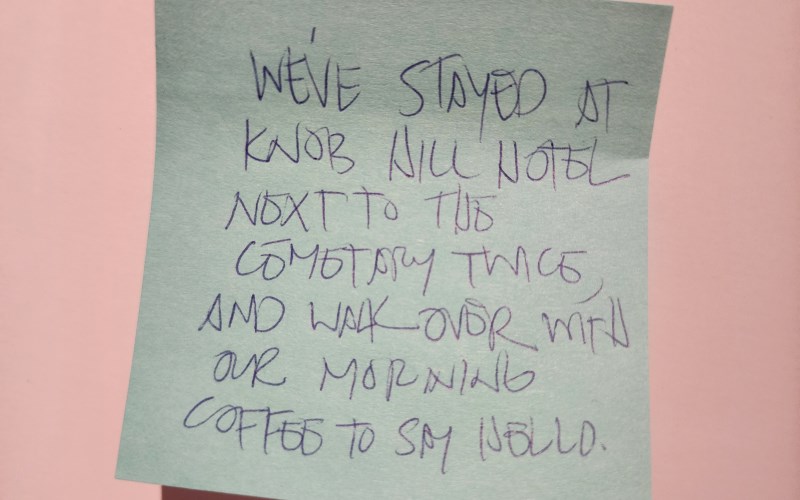 WE'VE STAYED AT
KNOB HILL HOTEL
NEXT TO THE
CEMETARY TWICE,
AND WALK OVER WITH
OUR MORNING
COFFEE TO SAY HELLO.